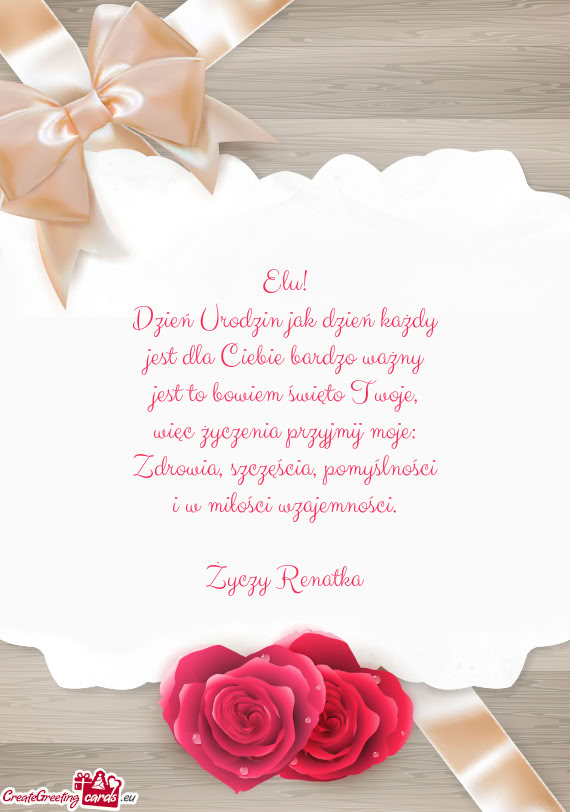 Elu!
Dzień Urodzin jak dzień każdy
jest dla Ciebie bardzo ważny
jest to bowiem święto Twoje,
więc życzenia przyjmij moje:
Zdrowia, szczęścia, pomyślności
i w miłości wzajemności.
Życzy Renatka
CreateGreeting cards .eu